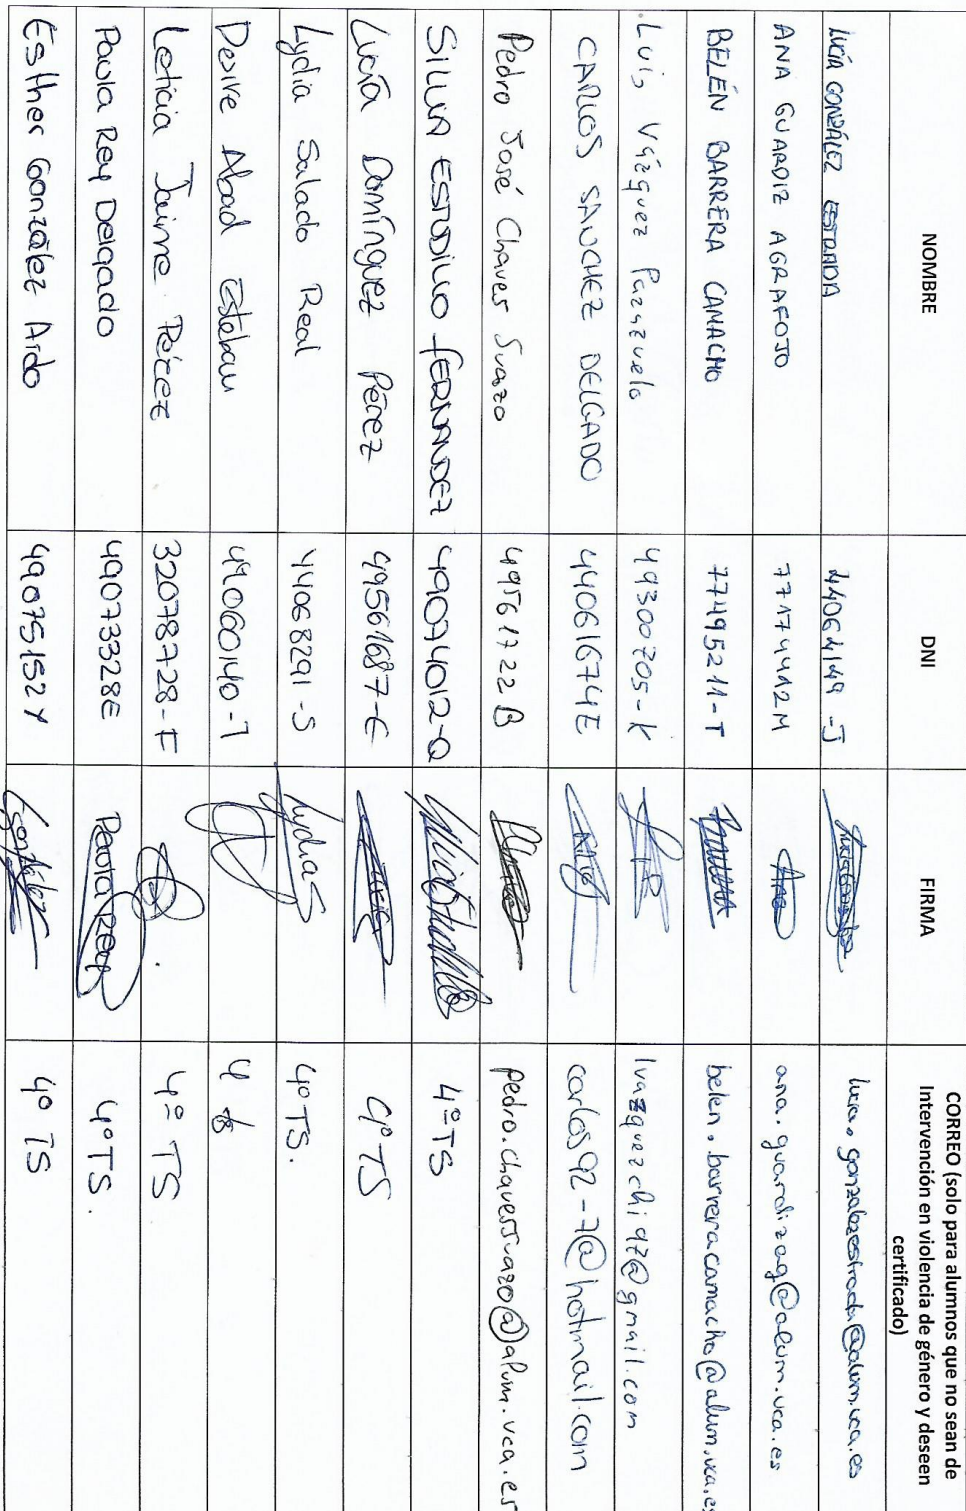 NOMBRE DNI FIRMA CORREO (solo para alumnos que no sean de
Intervención en violencia de género y deseen
certificado)
LUCÍA GONZÁLEZ ESTRADA 44064149-J lucia.gonzalezestrada@alum.uca.es
ANA GUARDIZ AGRAFOJO 77174442M Ana ana.guardizag@alum.uca.es
BELÉN BARRERA CAMACHO 77495211-T belen.barreracamacho@alum.uca.es
Luis Vázquez Parazuelo 49300705-K lvazquezchi97@gmail.com
CARLOS SÁNCHEZ DELGADO 44061674E carlos92-7@hotmail.com
Pedro José Chaves Suazo 49561722B pedro.chavessuazo@alum.uca.es
SILVIA ESTUDILLO FERNANDEZ 49074012-Q 4º TS
Lucía Domínguez Pérez 49561687-E 4º TS
Lydia Salado Real 44068291-S LydiaS 4º TS.
Desire Abad Esteban 49060140-T 4 ts
Leticia Jaime Pérez 32078728-F 4º TS
Paula Rey Delgado 49073328E Paula Rey 4º TS.
Esther González Ardo 49075152Y González 4º TS